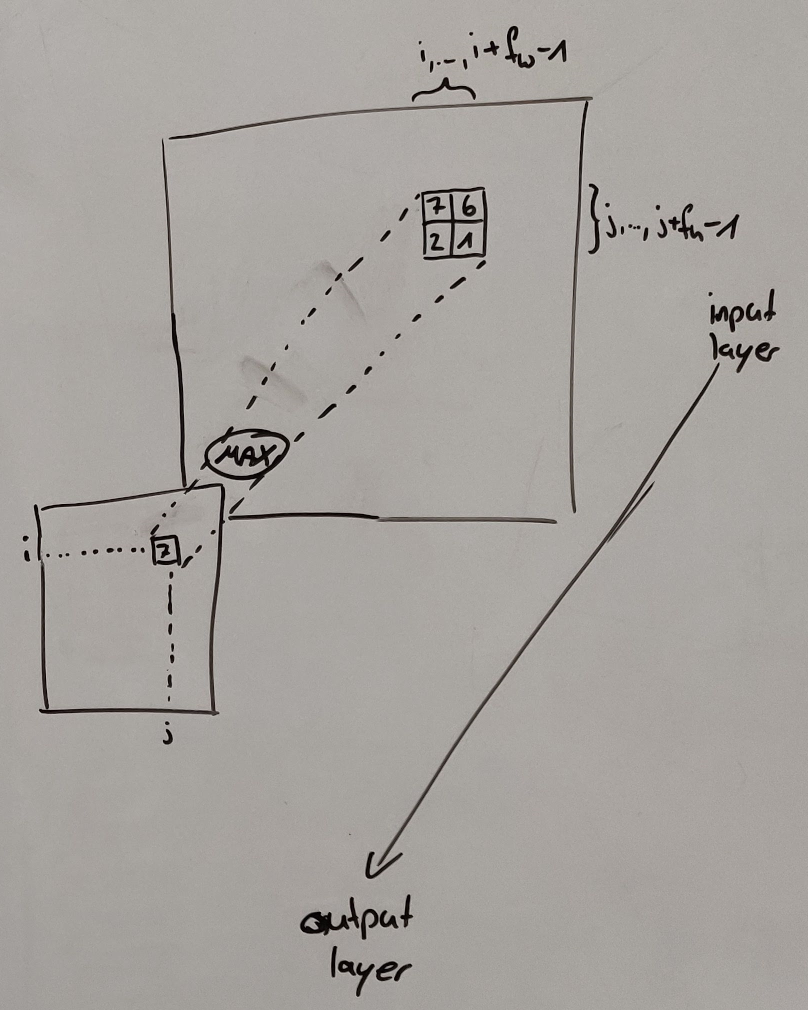 i,...,i+f_w-1
7 6
2 1
}j,...,j+f_h-1
input
layer
MAX
i
7
j
output
layer